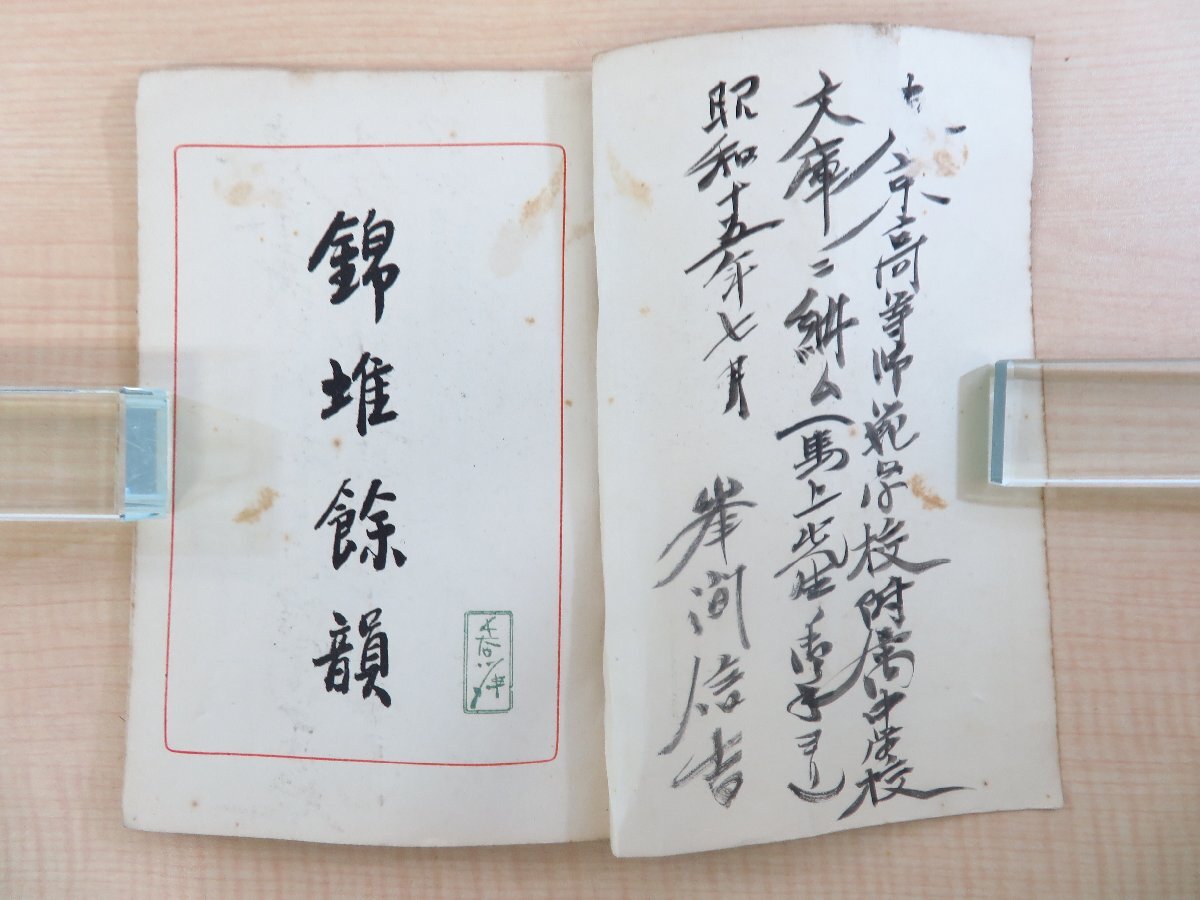 京高等師範学校附属中学校
文庫ニ納ム(馬上先生ノ御手ヨリ)
昭和十五年七月
峯間信吉
錦堆餘韻